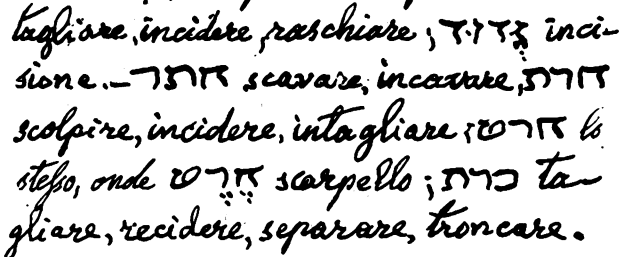 tagliare, incidere, raschiare; גְדוּד inci-
sione.— חתר scavare, incavare, חרת
scolpire, incidere, intagliare; חרט lo
stesso, onde חֶרֶט scarpello; כרת ta-
gliare, recidere, separare, troncare.